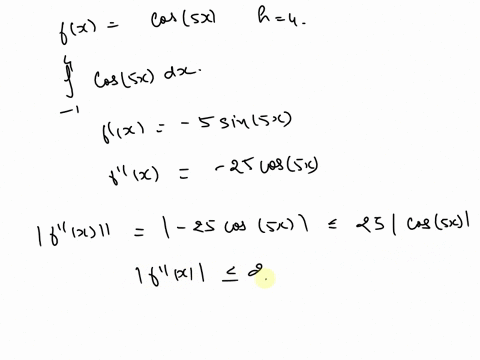 f(x) = cos(5x) h=4.
∫₋₁⁴ cos(5x) dx.
f'(x) = -5 sin(5x)
f''(x) = -25 cos(5x)
|f''(x)| = |-25 cos(5x)| ≤ 25 | cos(5x)|
|f''(x)| ≤ 2